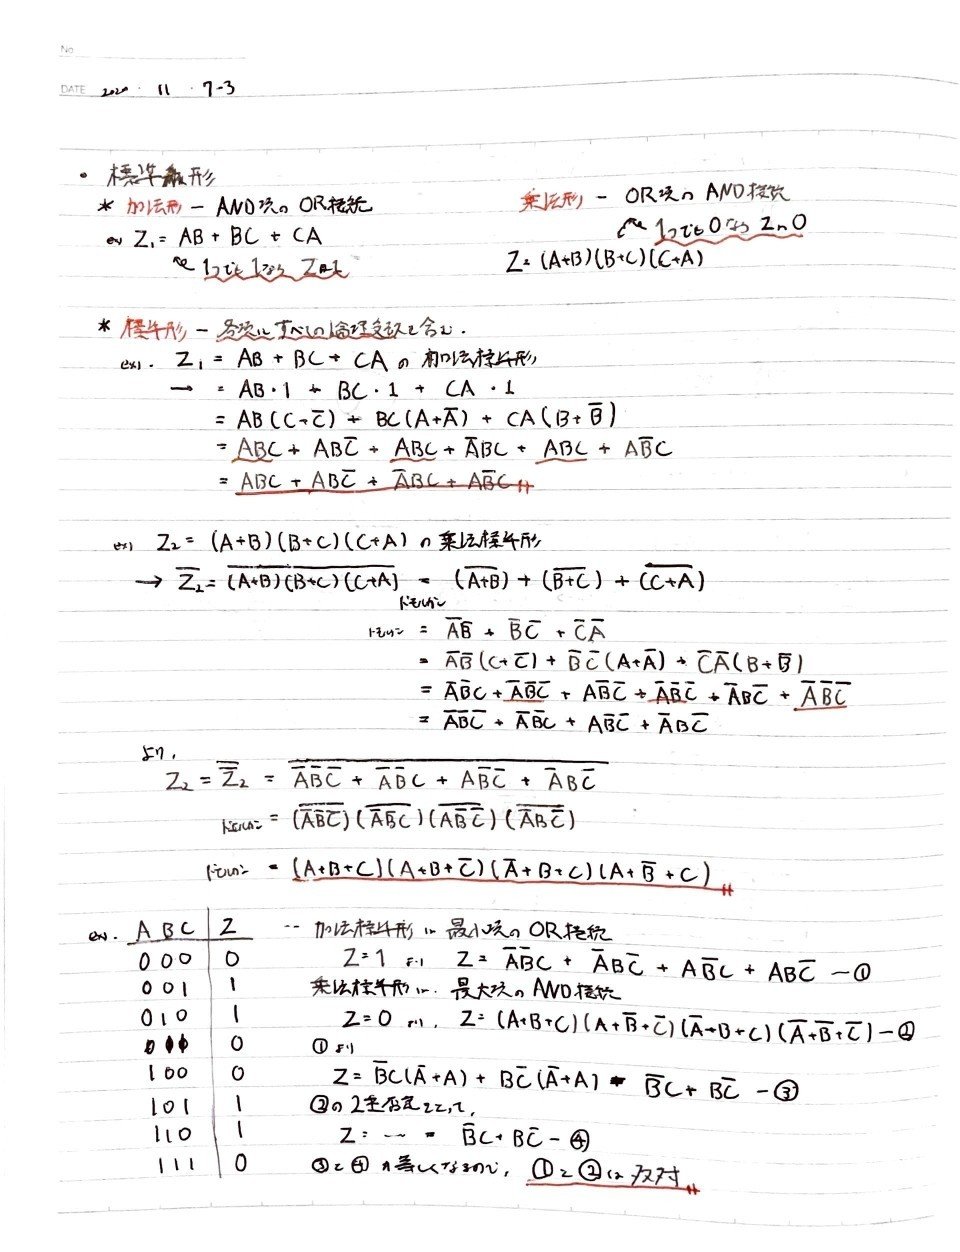 No
DATE 2020 · 11 · 7-3
・ 標準形
* 加法形 - AND項の OR接続
ex Z₁ = AB + BC + CA
1つでも1なら Zは1
乗法形 - OR項の AND接続
1つでも0なら Zは0
Z = (A+B)(B+C)(C+A)
* 標準形 - 各項にすべての論理変数を含む.
ex). Z₁ = AB + BC + CA の 加法標準形
→ = AB・1 + BC・1 + CA・1
= AB(C+C̅) + BC(A+A̅) + CA(B+B̅)
= ABC + ABC̅ + ABC + A̅BC + ABC + AB̅C
= ABC + ABC̅ + A̅BC + AB̅C
ex) Z₂ = (A+B)(B+C)(C+A) の 乗法標準形
→ Z̅₂ = \overline{(A+B)(B+C)(C+A)} = (\overline{A+B}) + (\overline{B+C}) + (\overline{C+A})
ドモルガン
ドモルガン = A̅B̅ + B̅C̅ + C̅A̅
= A̅B̅(C+C̅) + B̅C̅(A+A̅) + C̅A̅(B+B̅)
= A̅B̅C + A̅B̅C̅ + AB̅C̅ + A̅B̅C̅ + A̅BC̅ + A̅B̅C̅
= A̅B̅C̅ + A̅B̅C + AB̅C̅ + A̅BC̅
より,
Z₂ = \overline{Z̅}₂ = \overline{A̅B̅C̅ + A̅B̅C + AB̅C̅ + A̅BC̅}
ドモルガン = (\overline{A̅B̅C̅})(\overline{A̅B̅C})(\overline{AB̅C̅})(\overline{A̅BC̅})
ドモルガン = (A+B+C)(A+B+C̅)(A̅+B+C)(A+B̅+C)
ex. A B C | Z
0 0 0 | 0
0 0 1 | 1
0 1 0 | 1
0 1 1 | 0
1 0 0 | 0
1 0 1 | 1
1 1 0 | 1
1 1 1 | 0
-- 加法標準形は 最小項の OR接続
Z=1 より Z = A̅B̅C + A̅BC̅ + AB̅C + ABC̅ - ①
乗法標準形は. 最大項の AND接続
Z=0 より, Z = (A+B+C)(A+B̅+C̅)(A̅+B+C)(A̅+B̅+C̅) - ②
①より
Z = B̅C(A̅+A) + BC̅(A̅+A) = B̅C + BC̅ - ③
②の 2重否定をとって,
Z = … = B̅C + BC̅ - ④
③と④が等しくなるので, ①と②は 反対